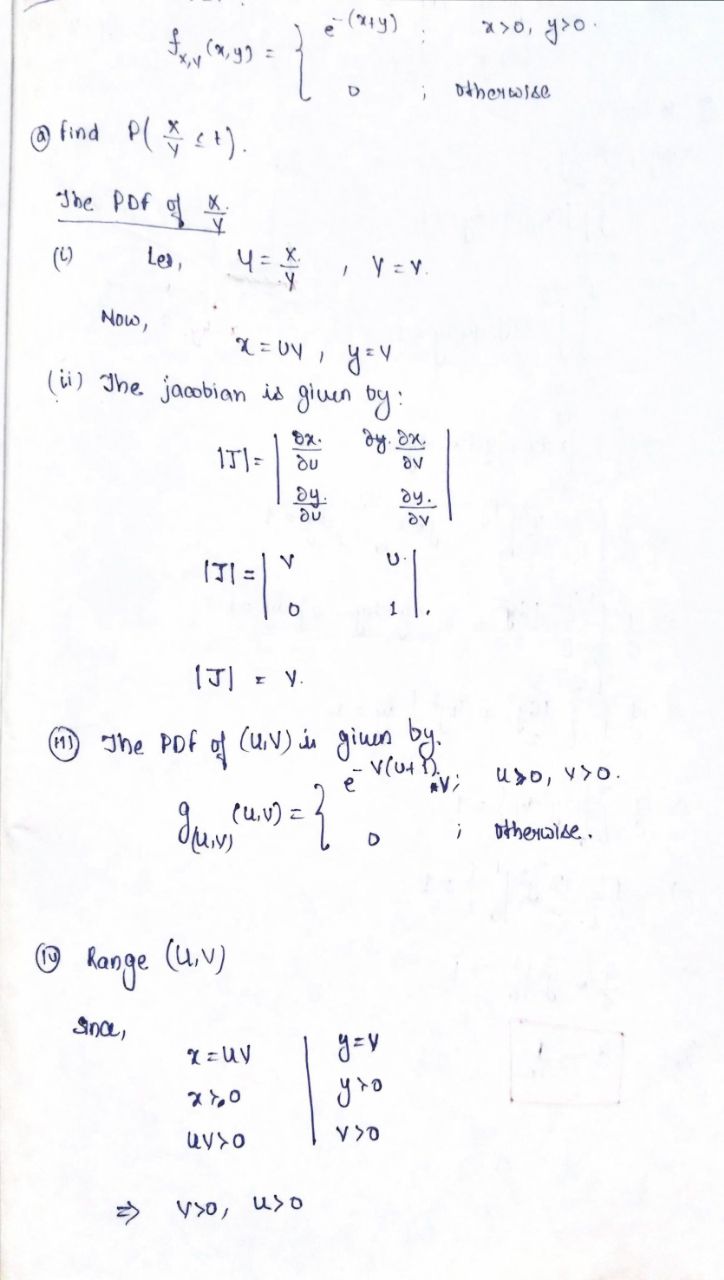 f_{X,Y}(x,y) = { e^{-(x+y)} ; x>0, y>0.
0 ; otherwise
(a) find P( X/Y ≤ t).
The PDF of X/Y
(i) Let, U = X/Y , V = Y.
Now,
x = UV , y = V
(ii) The jacobian is given by:
|J| = | ∂x/∂u ∂y. ∂x/∂v |
| ∂y/∂u ∂y/∂v |
|J| = | V U |
| 0 1 |.
|J| = V.
(iii) The PDF of (U,V) is given by.
g_{(U,V)}(u,v) = { e^{-V(U+1)}.V; u>0, v>0.
0 ; otherwise.
(iv) Range (U,V)
since,
x = uv | y = v
x>0 | y>0
uv>0 | v>0
⇒ v>0, u>0